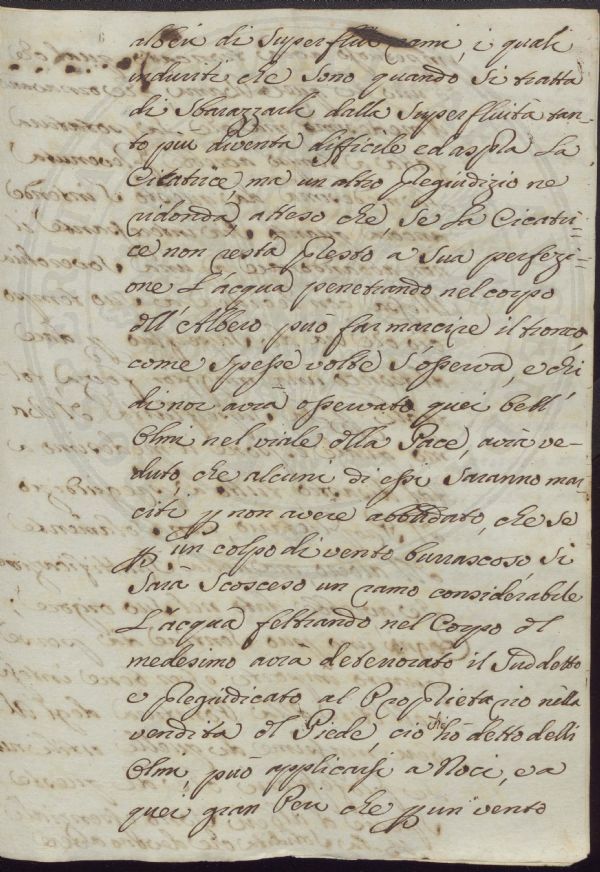 alberi di superflui rami, i quali
induriti che sono quando si tratta
di sbarazzarli dalla superfluità tan-
to più diventa difficile ed aspra la
Cicatrice, ma un altro pregiudizio ne
ridonda, atteso che, se la Cicatri=
ce non resta presto a sua perfezi=
one l'acqua penetrando nel corpo
dll'Albero può far marcire il tronco,
come spesse volte s'osserva, e chi
di noi avrà osservato quei bell'
Olmi nel viale dlla Pace, avrà ve-
duto, che alcuni di essi saranno mar-
citi p non avere abbadato, che se
p un colpo di vento burrascoso, si
sarà scosceso un ramo considerabile
L'acqua feltrando nel Corpo dl
medesimo avrà deteriorato il suddetto
e pregiudicato al Proprietario nella
vendita dl Piede, ciò che hò detto delli
Olmi, può applicarsi a Noci, e a
quei gran Peri che p un vento